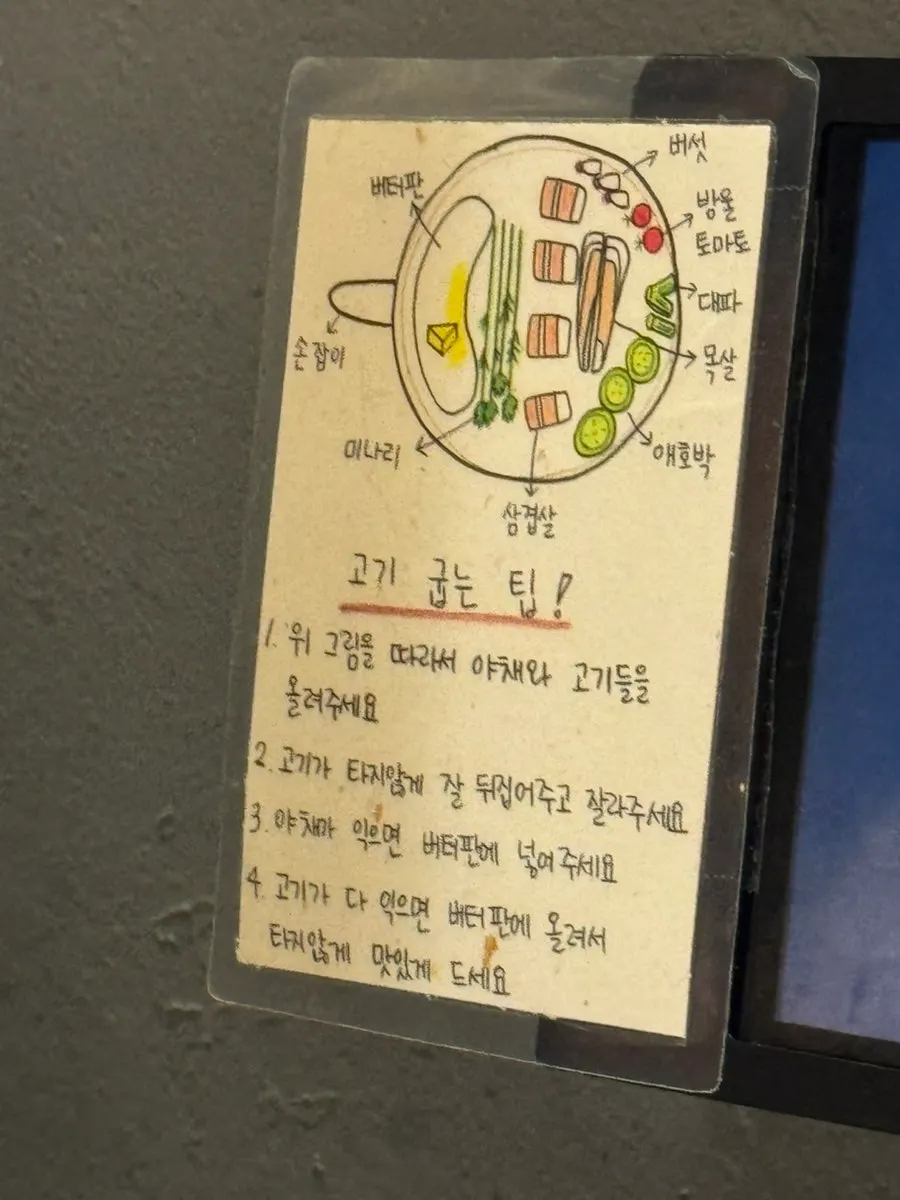 버섯
버터판
방울
토마토
대파
손잡이
목살
미나리
애호박
삼겹살
고기 굽는 팁!
1. 위 그림을 따라서 야채와 고기들을
올려주세요
2. 고기가 타지않게 잘 뒤집어주고 잘라주세요
3. 야채가 익으면 버터판에 넣어주세요
4. 고기가 다 익으면 버터판에 올려서
타지않게 맛있게 드세요